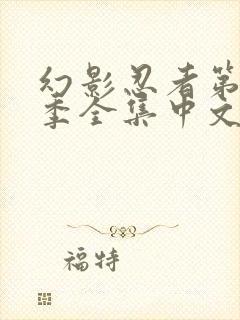 幻影忍者第
季全集中文
福特